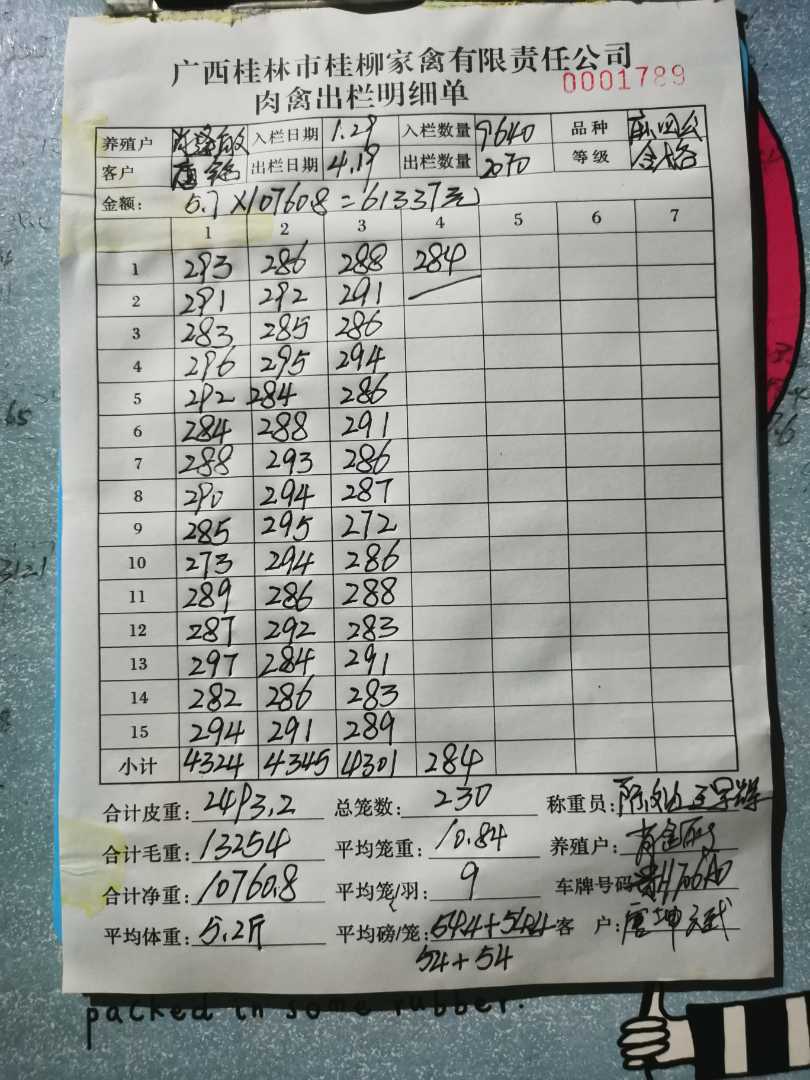 广西桂林市桂柳家禽有限责任公司
肉禽出栏明细单 0001789
养殖户 入栏日期 1.29 入栏数量 9640 品种
客户 出栏日期 4.19 出栏数量 2070 等级 合格
金额: 5.7×10760.8=61337元
1 2 3 4 5 6 7
1 293 286 288 284
2 291 292 291
3 283 285 286
4 296 295 294
5 292 284 286
6 284 288 291
7 288 293 286
8 290 294 287
9 285 295 272
10 273 294 286
11 289 286 288
12 287 292 283
13 297 284 291
14 282 286 283
15 294 291 289
小计 4324 4345 4301 284
合计皮重: 2493.2 总笼数: 230 称重员:
合计毛重: 13254 平均笼重: 10.84 养殖户:
合计净重: 10760.8 平均笼/羽: 9 车牌号码
平均体重: 5.2斤 平均磅/笼: 544+544 客 户: 唐坤
54+54
packed in some rubber.